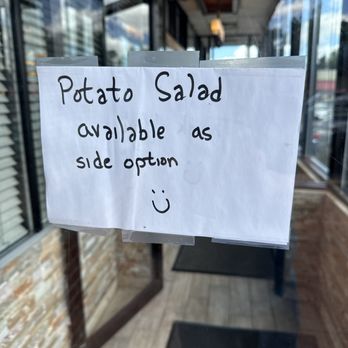 Potato Salad
available as
side option